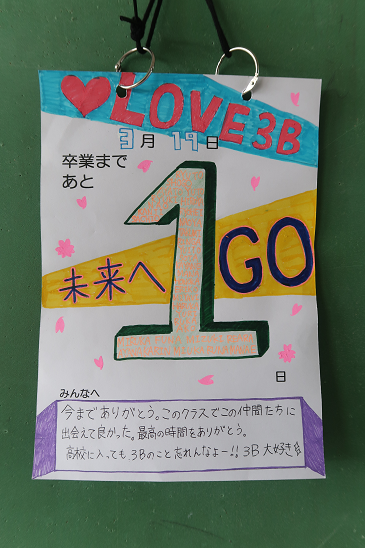 ♥LOVE 3B
3月19日
卒業まで
あと
1
未来へ GO
日
みんなへ
今までありがとう。このクラスでこの仲間たちに
出会えて良かった。最高の時間をありがとう。
高校に入っても3Bのこと忘れんなよー!! 3B 大好き